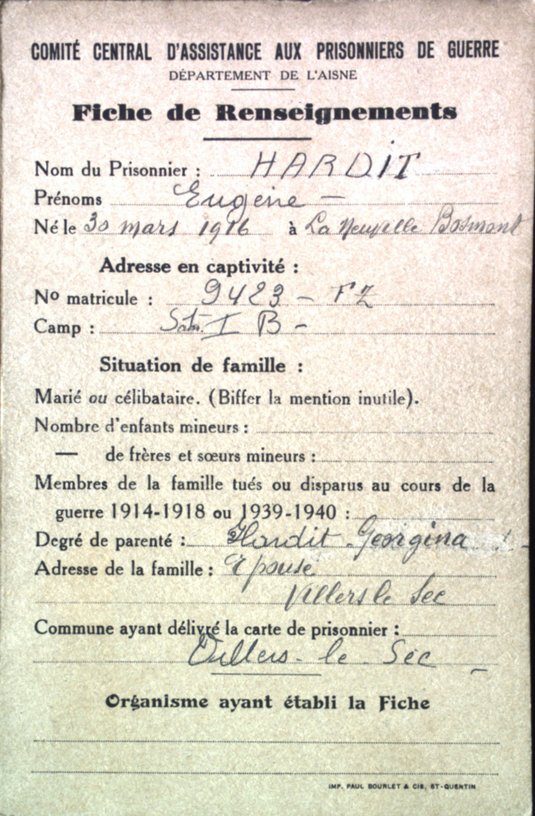 COMITÉ CENTRAL D'ASSISTANCE AUX PRISONNIERS DE GUERRE
DÉPARTEMENT DE L'AISNE
Fiche de Renseignements
Nom du Prisonnier : HARDIT
Prénoms Eugène
Né le 30 mars 1916 à La Neuville Bosmont
Adresse en captivité :
No matricule : 9423 - FZ
Camp : I B -
Situation de famille :
Marié ou célibataire. (Biffer la mention inutile).
Nombre d'enfants mineurs :
— de frères et sœurs mineurs :
Membres de la famille tués ou disparus au cours de la
guerre 1914-1918 ou 1939-1940 :
Degré de parenté : Hardit Georgina
Adresse de la famille : Epouse
Villers le Sec
Commune ayant délivré la carte de prisonnier :
Villers - le - Sec
Organisme ayant établi la Fiche
IMP. PAUL BOURLET & CIE, ST-QUENTIN